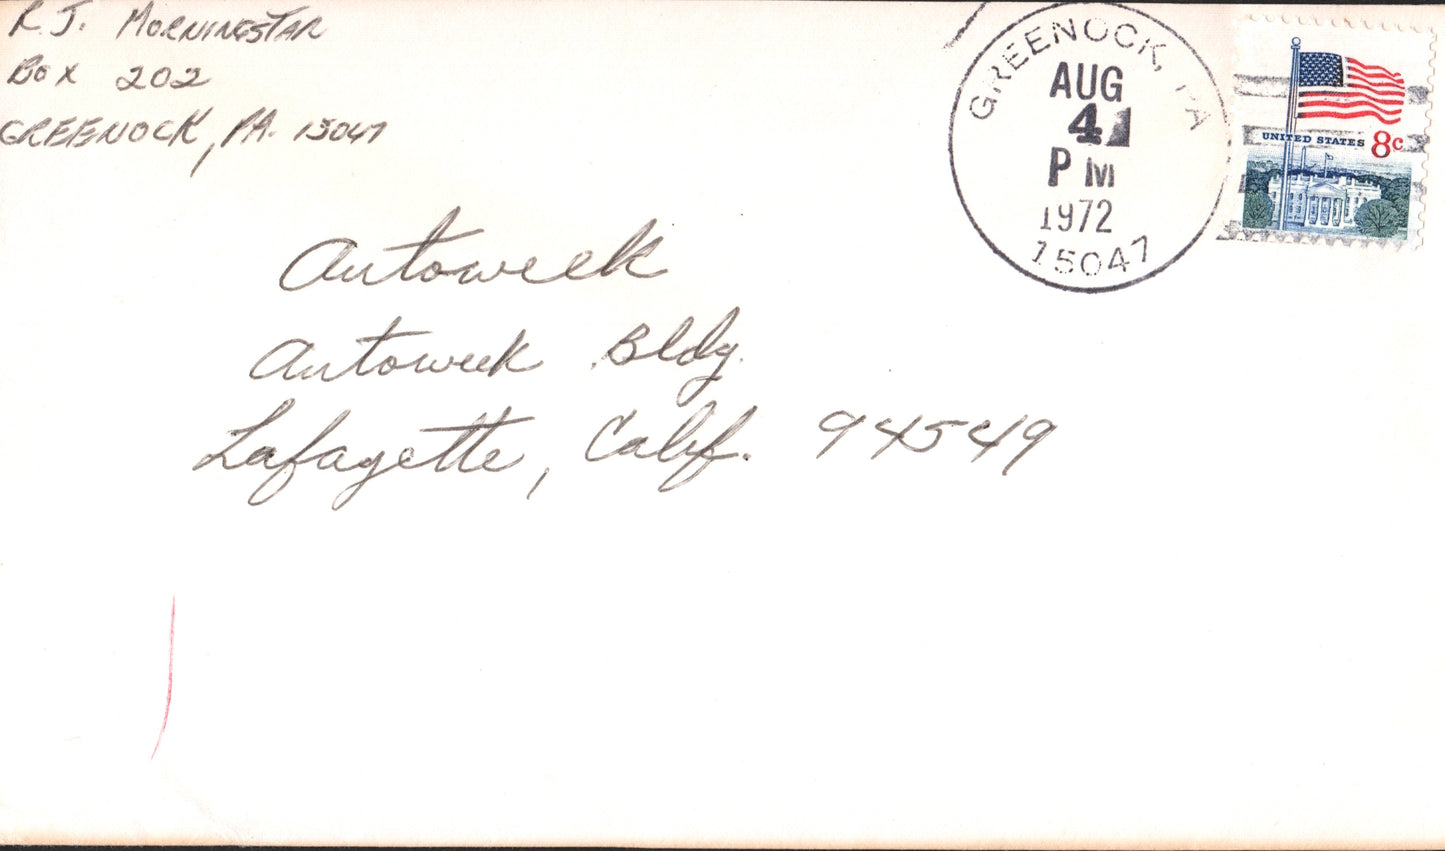 R.J. MORNINGSTAR
BOX 202
GREENOCK, PA. 15047
GREENOCK, PA
AUG
4
PM
1972
15047
UNITED STATES 8c
Autoweek
Autoweek Bldg.
Lafayette, Calif. 94549